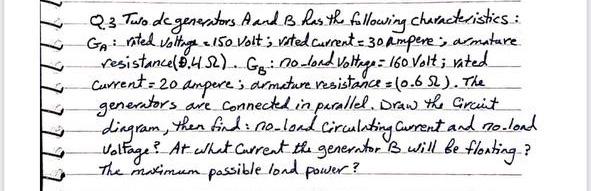 Q3 Two dc generators A and B has the following characteristics :
GA : rated Voltage = 150 Volt ; rated current = 30 ampere ; armature
resistance (0.4 Ω). GB : no-load Voltage = 160 Volt ; rated
Current = 20 ampere ; armature resistance = (0.6 Ω). The
generators are connected in parallel. Draw the Circuit
diagram, then find : no-load Circulating Current and no-load
Voltage ? At what Current the generator B will be floating ?
The maximum possible load power ?